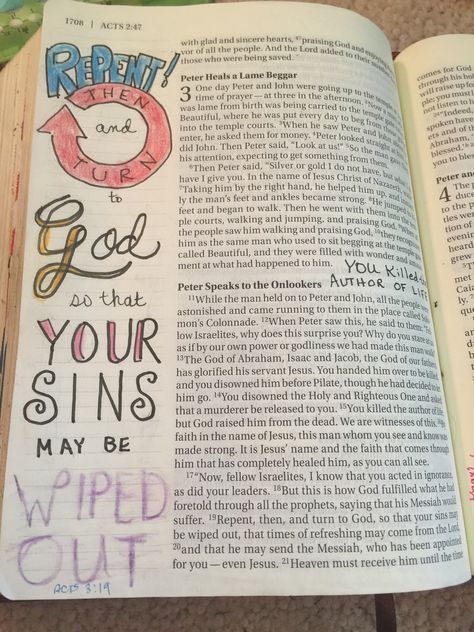 1708 | ACTS 2:47
REPENT!
THEN
and
TURN
to
God
so that
YOUR
SINS
MAY BE
WIPED
OUT
ACTS 3:19
with glad and sincere hearts, 47praising God and enjoying
vor of all the people. And the Lord added to their
those who were being saved.
Peter Heals a Lame Beggar
3 One day Peter and John were going up to the temple
time of prayer — at three in the afternoon. 2Now a
was lame from birth was being carried to the temple
Beautiful, where he was put every day to beg from
into the temple courts. 3When he saw Peter and John
enter, he asked them for money. 4Peter looked straight
did John. Then Peter said, "Look at us!" 5So the man gave
his attention, expecting to get something from them.
6Then Peter said, "Silver or gold I do not have, but
have I give you. In the name of Jesus Christ of Nazareth,
7Taking him by the right hand, he helped him up, and
ly the man's feet and ankles became strong. 8He jumped to
feet and began to walk. Then he went with them into the
ple courts, walking and jumping, and praising God. 9When
the people saw him walking and praising God, 10they recognized
him as the same man who used to sit begging at the temple
called Beautiful, and they were filled with wonder and
ment at what had happened to him.
YOU Killed the
AUTHOR OF LIFE
Peter Speaks to the Onlookers
11While the man held on to Peter and John, all the people
astonished and came running to them in the place called
mon's Colonnade. 12When Peter saw this, he said to them:
low Israelites, why does this surprise you? Why do you stare at
as if by our own power or godliness we had made this man
13The God of Abraham, Isaac and Jacob, the God of our fathers,
has glorified his servant Jesus. You handed him over to be killed,
and you disowned him before Pilate, though he had decided to
him go. 14You disowned the Holy and Righteous One and asked
that a murderer be released to you. 15You killed the author of life,
but God raised him from the dead. We are witnesses of this. 16By
faith in the name of Jesus, this man whom you see and know was
made strong. It is Jesus' name and the faith that comes through
him that has completely healed him, as you can all see.
17"Now, fellow Israelites, I know that you acted in ignorance,
as did your leaders. 18But this is how God fulfilled what he had
foretold through all the prophets, saying that his Messiah would
suffer. 19Repent, then, and turn to God, so that your sins may
be wiped out, that times of refreshing may come from the Lord,
20and that he may send the Messiah, who has been appointed
for you — even Jesus. 21Heaven must receive him until the time
comes for God
Abraham,
blessed.'
Peter and
4 The